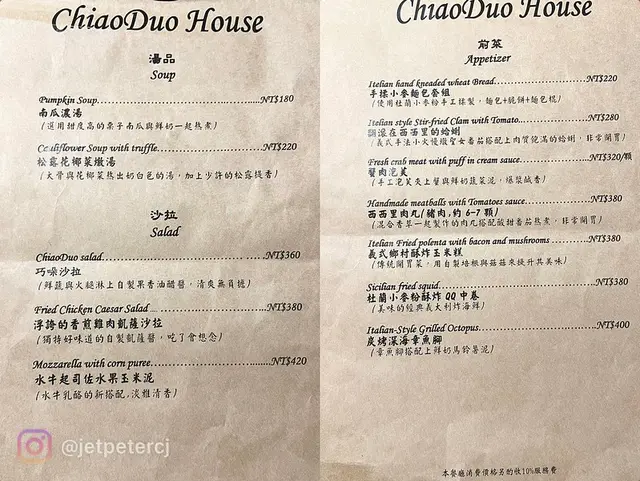 ChiaoDuo House
湯品
Soup
Pumpkin Soup...NT$180
南瓜濃湯
(選用甜度高的栗子南瓜與鮮奶一起熬煮)
Cauliflower Soup with truffle...NT$220
松露花椰菜燉湯
(大骨與花椰菜熬出奶白色的湯，加上少許的松露提香)
沙拉
Salad
ChiaoDuo salad...NT$360
巧哚沙拉
(鮮蔬與火腿淋上自製果香油醋醬，清爽無負擔)
Fried Chicken Caesar Salad...NT$380
浮誇的香煎雞肉凱薩沙拉
(獨特好味道的自製凱薩醬，吃了會想念)
Mozzarella with corn puree...NT$420
水牛起司佐水果玉米泥
(水牛乳酪的新搭配，淡雅清香)
@jetpetercj
ChiaoDuo House
前菜
Appetizer
Italian hand kneaded wheat Bread...NT$220
手揉小麥麵包套組
(使用杜蘭小麥粉手工揉製，麵包+脆餅+麵包棍)
Italian style Stir-fried Clam with Tomato...NT$280
翻滾在西西里的蛤蜊
(義式手法小火慢燉聖女番茄搭配上肉質飽滿的蛤蜊，非常開胃)
Fresh crab meat with puff in cream sauce...NT$320/顆
蟹肉泡芙
(手工泡芙夾上蟹與鮮奶蔬菜泥，爆漿鹹香)
Handmade meatballs with Tomatoes sauce...NT$380
西西里肉丸(豬肉,約 6-7 顆)
(混合香草一起製作的肉丸搭配酸甜番茄熬煮，非常開胃)
Italian Fried polenta with bacon and mushrooms...NT$380
義式鄉村酥炸玉米糕
(傳統開胃菜，用自製培根與菇菇來提升其美味)
Sicilian fried squid...NT$380
杜蘭小麥粉酥炸 QQ 中卷
(美味的經典義大利炸海鮮)
Italian-Style Grilled Octopus...NT$400
炭烤深海章魚腳
(章魚腳搭配上鮮奶馬鈴薯泥)
本餐廳消費價格另酌收10%服務費